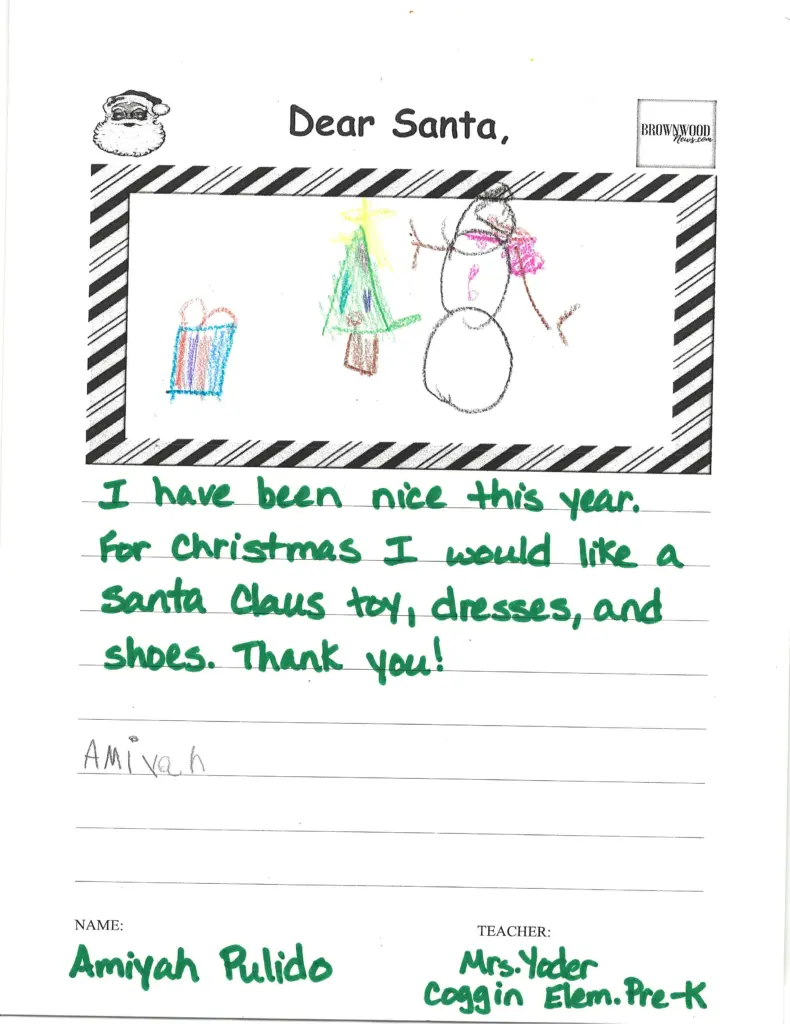 Dear Santa,
BROWNWOOD
News.com
I have been nice this year.
For Christmas I would like a
Santa Claus toy, dresses, and
shoes. Thank you!
AMiyah
NAME:
TEACHER:
Amiyah Pulido
Mrs. Yoder
Coggin Elem. Pre-K